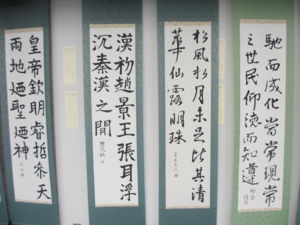 馳而成化當常現常
之世民仰德而知遵
松風水月未足比其清
華仙露明珠
漢初趙景王張耳浮
沉秦漢之間
皇帝欽明睿哲參天
兩地迺聖迺神